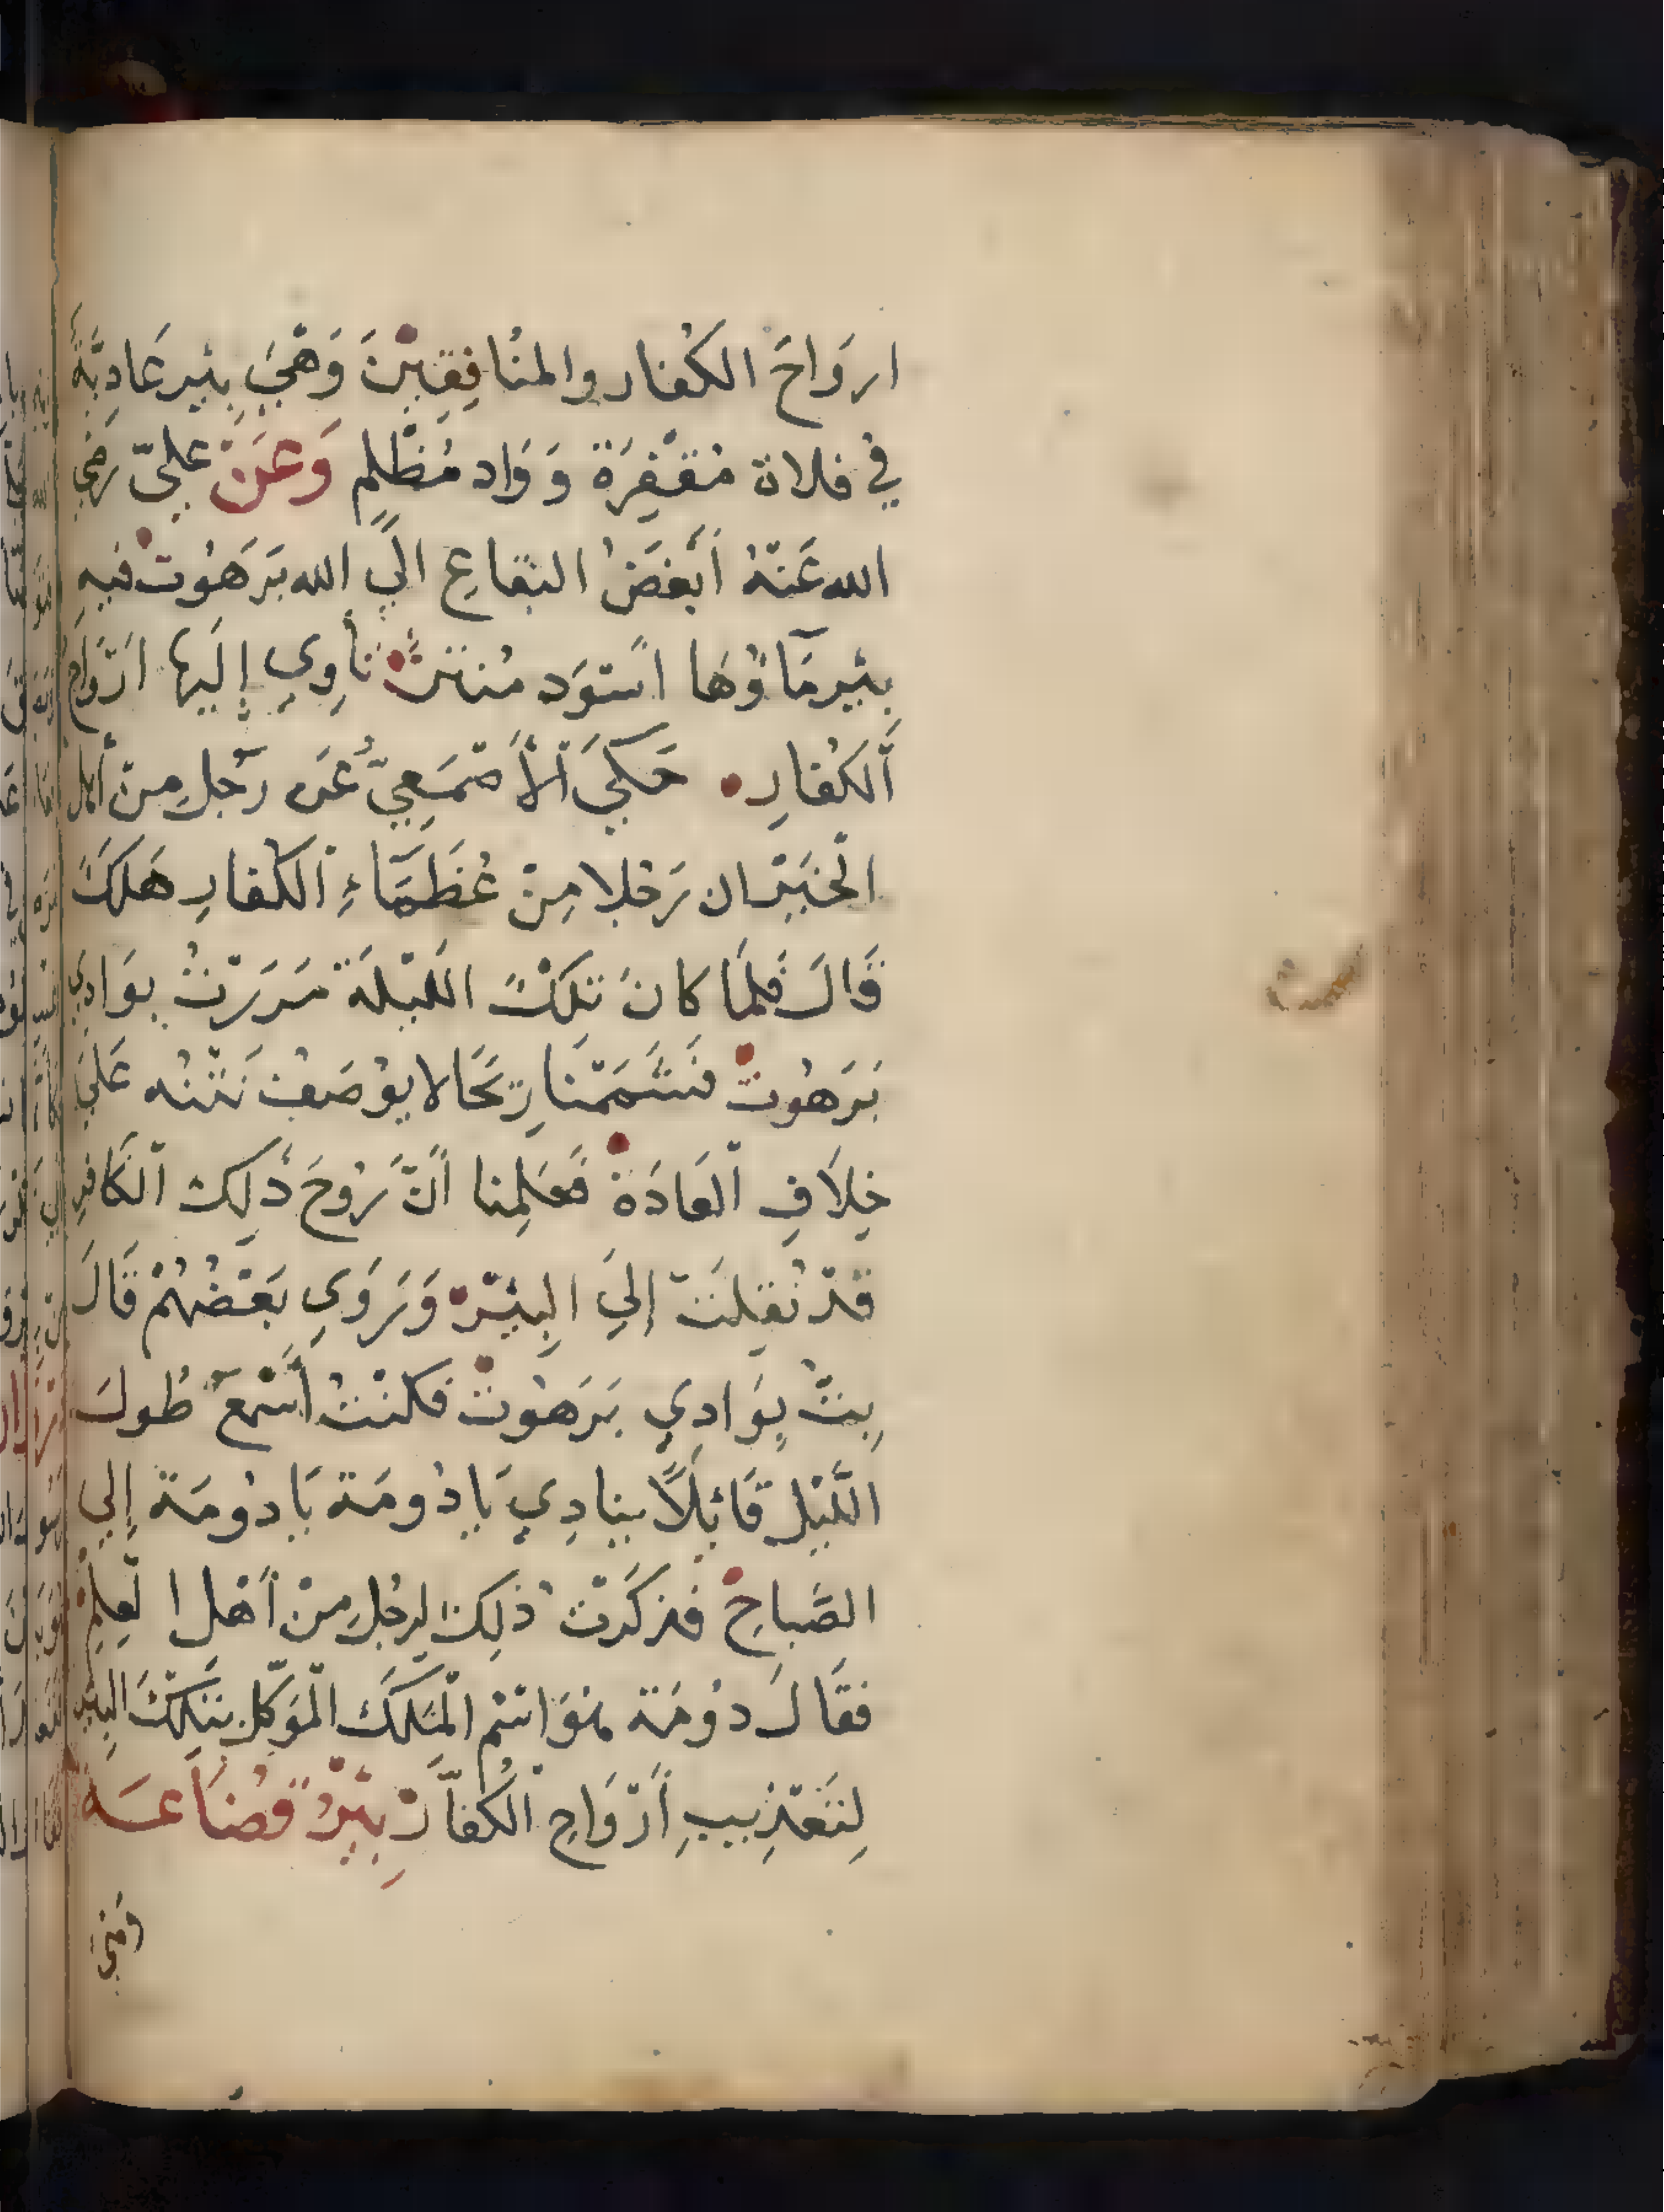 ارَوَاحَ الكُفار والمنُافِقِيْنَ وَهْيَ بِئير عَادِيَّةً
في فلاة مُقْفِرَة وَوَاد مُظْلِمٍ وَعَنْ عَلِيّ رَضِي
الله عَنْهُ أَبْغَضُ البقاعِ الَي الله بَرَهُوتْ فيهِ
بِئير مَاؤُهَا اسْوَد مُنتنْ تأوِي إِلَيها ارْوَاحُ
اَلكُفارِ حَكيَ اَلْأَصْمَعِيُّ عَن رَجُلٍ مِنْ أهل
الْخَيْرَ ان رَجُلا مِنْ عُظَمَاءِ اَلكُفارِ هَلَكَ
قَالَ فَلَمَا كانَ تلكَْ اللَيْلَة مَرَرْتُ بِوَادِي
بَرَهُوتْ فَشَمَمْنَا رِيحَا لا يُوْصَفُ نَتْنُه عَلَيَ
خِلَافِ اَلعَادَة فَعَلِمنا اَنَّ رُوحَ ذَلِكَ اَلكَافِرِ
قَدْ نُقِلَتْ إليَ البِئيْرْ وَرَوَي بَعْضُهُمْ قَالَ
بِتُّ بِوَادِي بَرَهُوتْ فكنْتُ أَسْمَعُ طُولَ
اللَّيْلِ قَائِلًا ينادِي يَا دُومَة يَا دُومَة إِلي
الصَّباحِ فذكَرتْ ذلِكَ لرجُلٍ مِنْ أَهْل ا لعِلمِْ
فقَالَ دُومَة هُوَ اسْم الْمَلَكَ الْمُوَكَّل بتَلكَْ البِئير
لِتَعْذِيبِ أَرْوَاحِ الكُفَّارْ بِئيْرُ قُضَاعَه
وَهْيَ